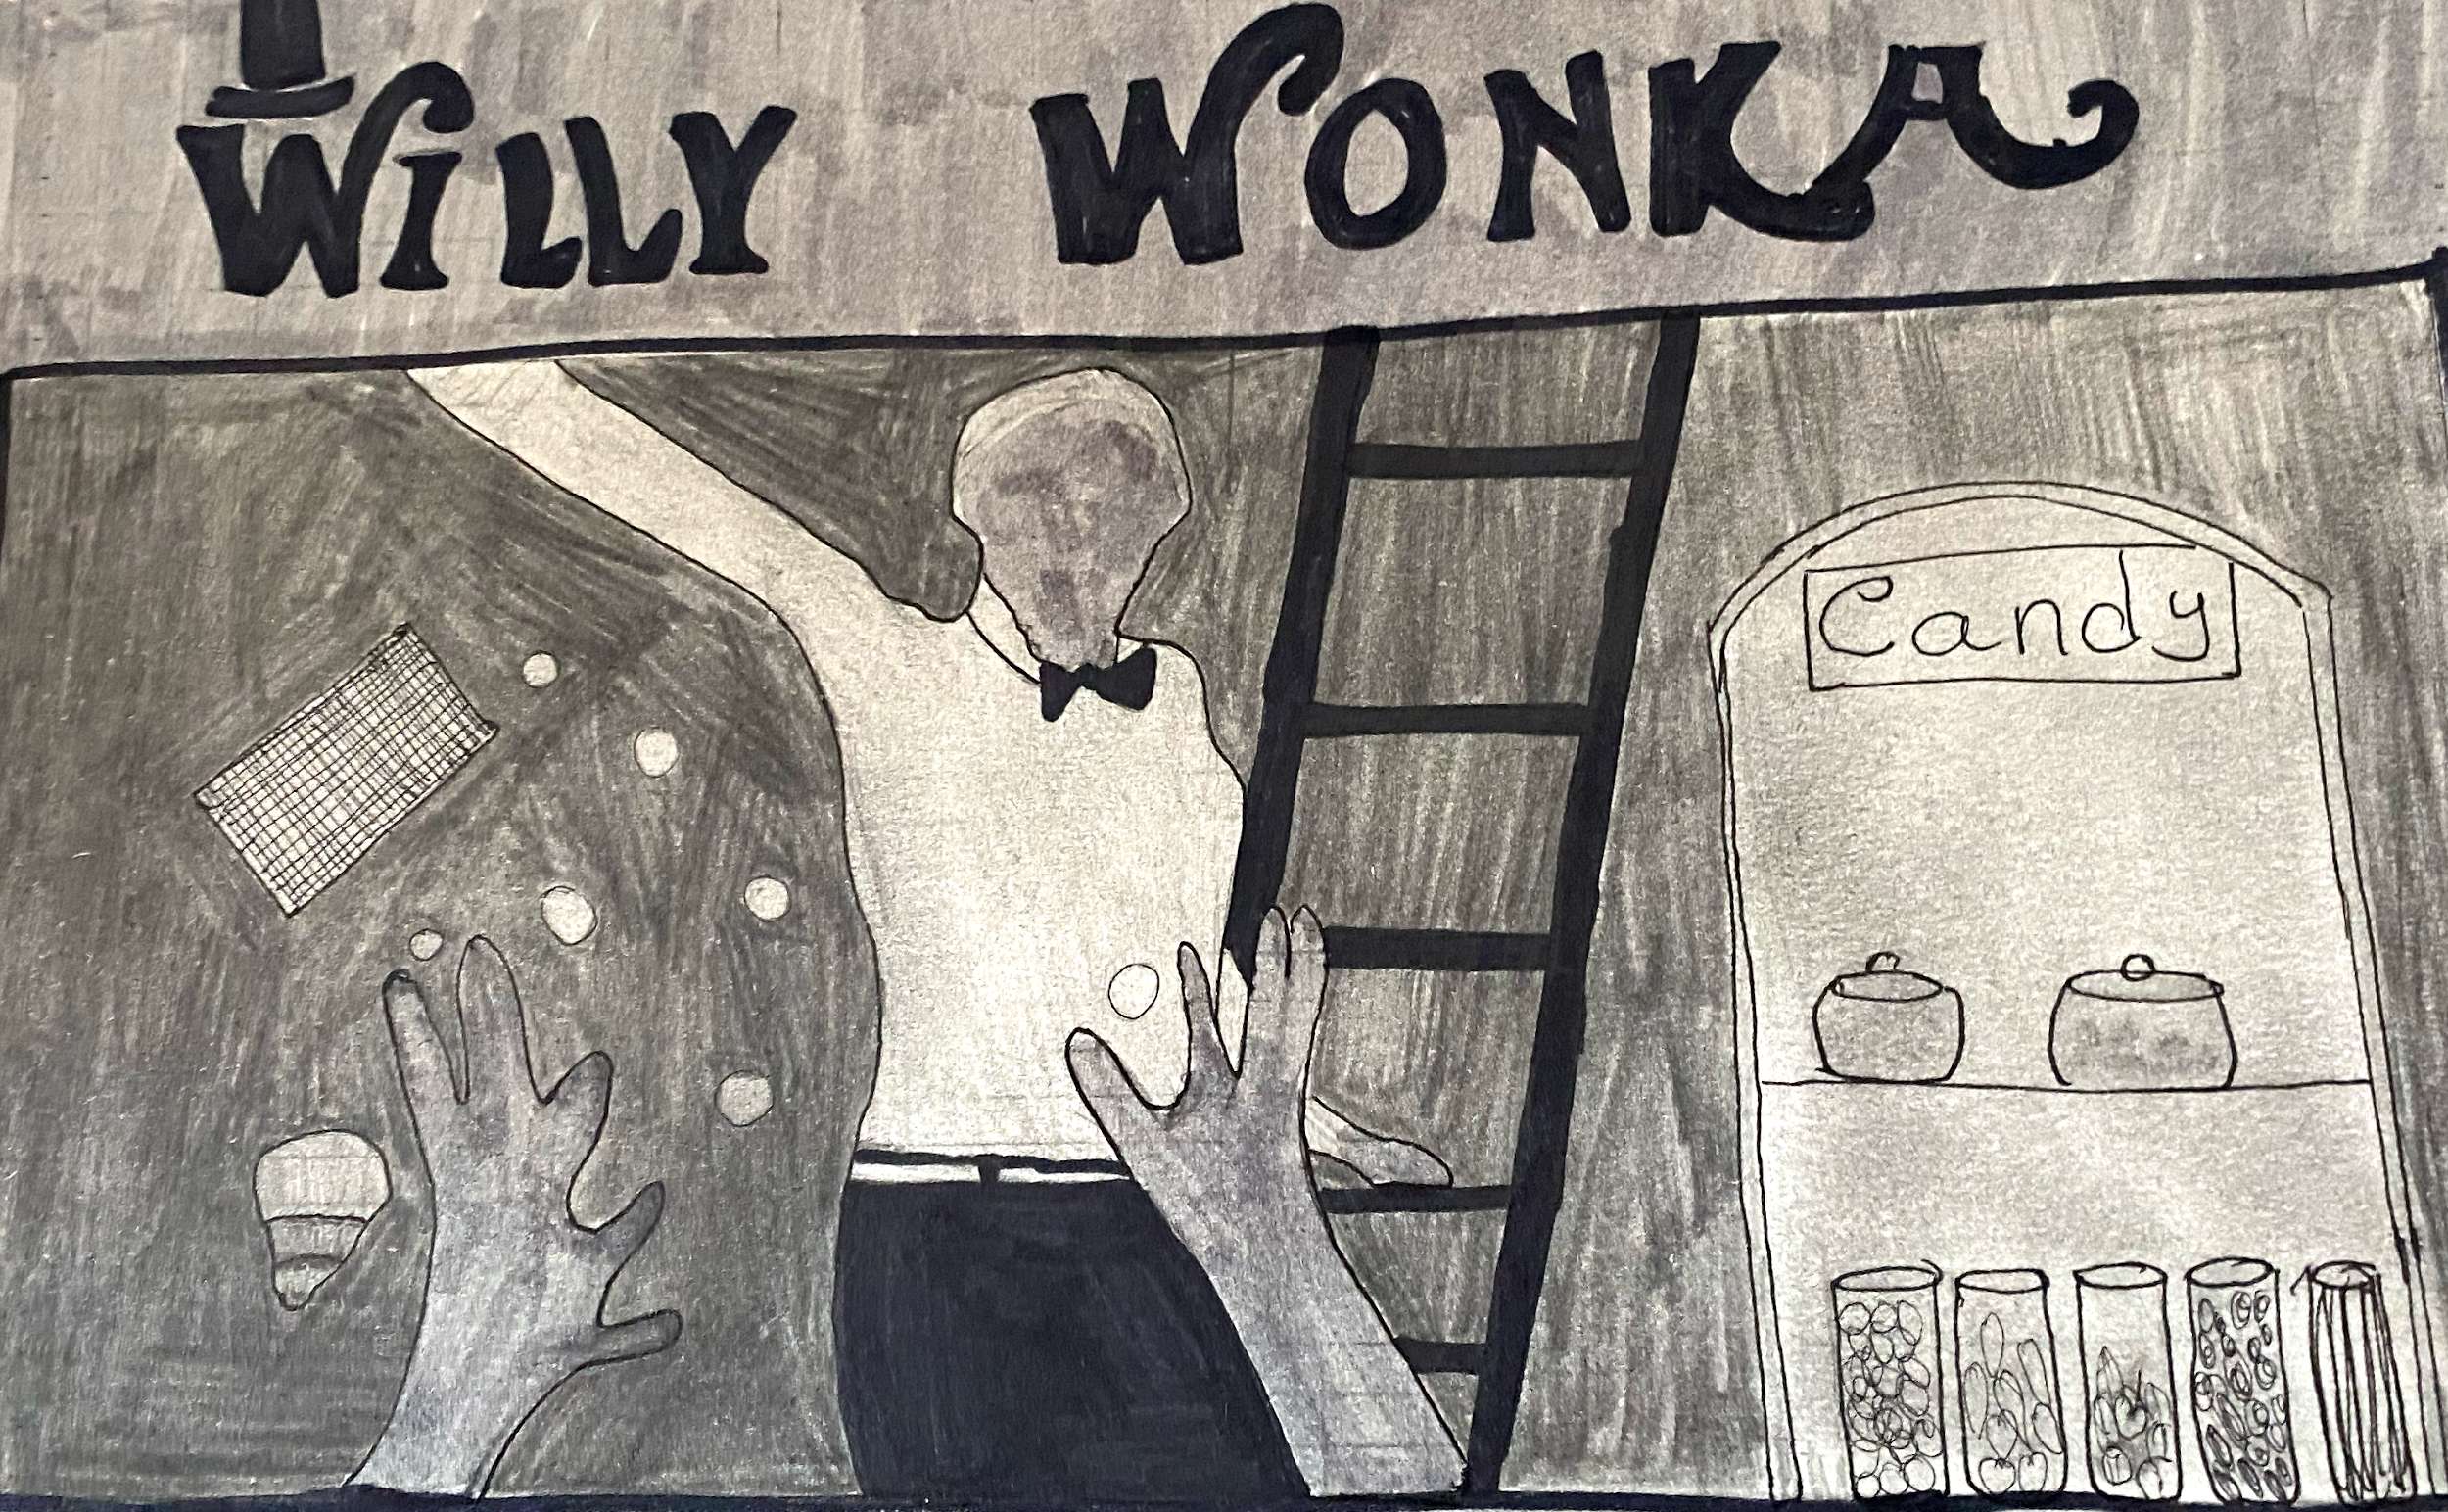 WiLLY WONKA
Candy